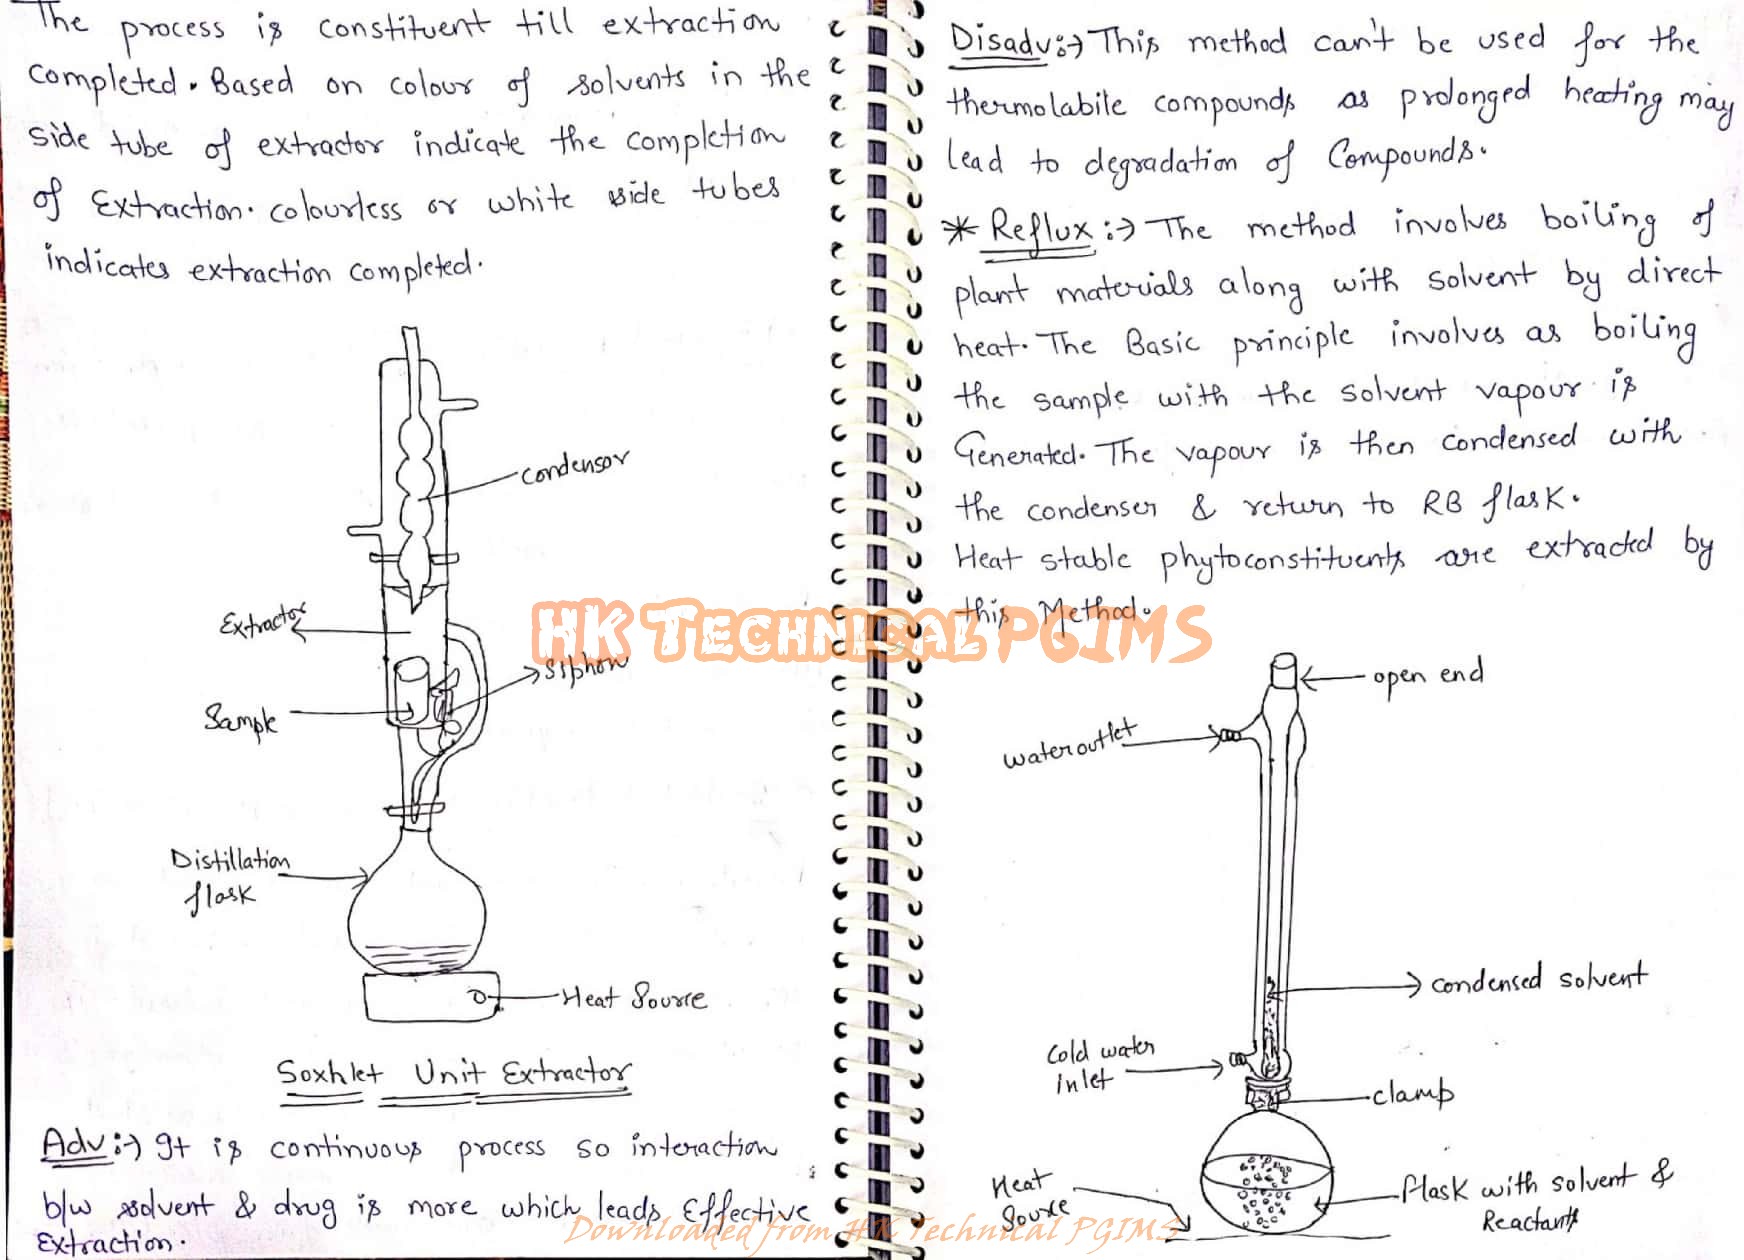 The process is constituent till extraction
completed. Based on colour of solvents in the
side tube of extractor indicate the completion
of Extraction. colourless or white side tubes
indicates extraction completed.
condensor
Extractor
Siphon
Sample
Distillation
flask
Heat Source
Soxhlet Unit Extractor
Adv:-) It is continuous process so interaction
b/w solvent & drug is more which leads Effective
Extraction.
Disadv:-) This method can't be used for the
thermolabile compounds as prolonged heating may
lead to degradation of Compounds.
* Reflux :-) The method involves boiling of
plant materials along with solvent by direct
heat. The Basic principle involves as boiling
the sample with the solvent vapour is
Generated. The vapour is then condensed with
the condenser & return to RB flask.
Heat stable phytoconstituents are extracted by
this Method.
open end
water outlet
condensed solvent
Cold water
inlet
clamp
Heat
Source
flask with solvent &
Reactants
HK Technical PGIMS
Downloaded from HK Technical PGIMS